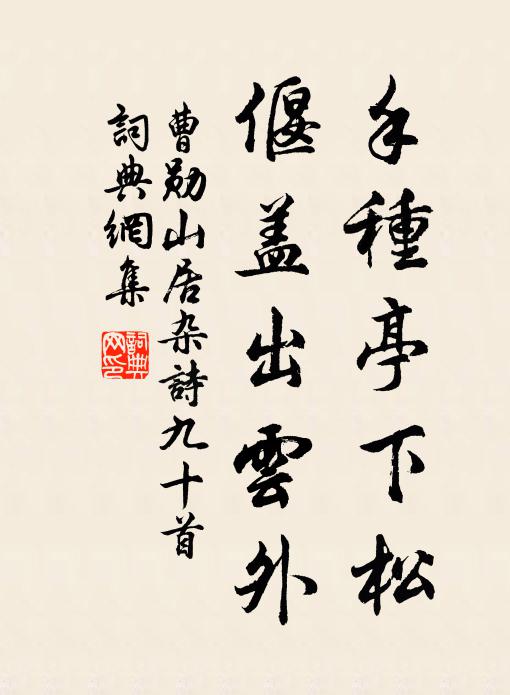 手種亭下松
偃盖出雲外
曹勋山居杂詩九十首
詞典網集
詞典
网印